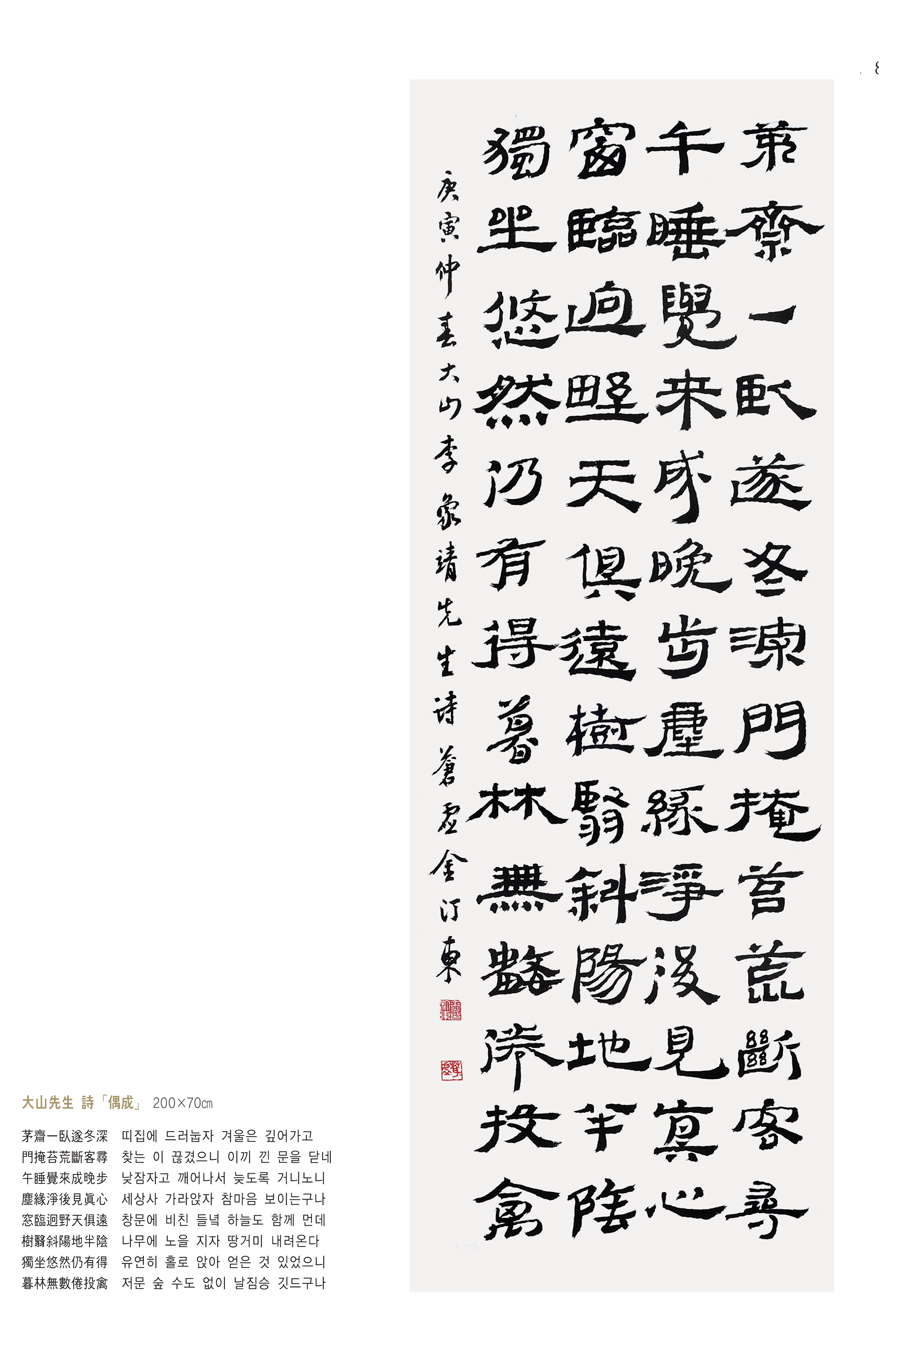 茅齋一臥遂冬深門掩苔荒斷客尋
午睡覺来成晚步塵緣淨後見真心
窗臨逈野天俱遠樹翳斜陽地半陰
獨坐悠然仍有得暮林無數倦投禽
庚寅仲春大山李象靖先生诗 蒼虛金汀東
大山先生 詩「偶成」 200×70㎝
茅齋一臥遂冬深 띠집에 드러눕자 겨울은 깊어가고
門掩苔荒斷客尋 찾는 이 끊겼으니 이끼 낀 문을 닫네
午睡覺來成晚步 낮잠자고 깨어나서 늦도록 거니노니
塵緣淨後見眞心 세상사 가라앉자 참마음 보이는구나
窓臨迥野天俱遠 창문에 비친 들녘 하늘도 함께 먼데
樹翳斜陽地半陰 나무에 노을 지자 땅거미 내려온다
獨坐悠然仍有得 유연히 홀로 앉아 얻은 것 있었으니
暮林無數倦投禽 저문 숲 수도 없이 날짐승 깃드구나